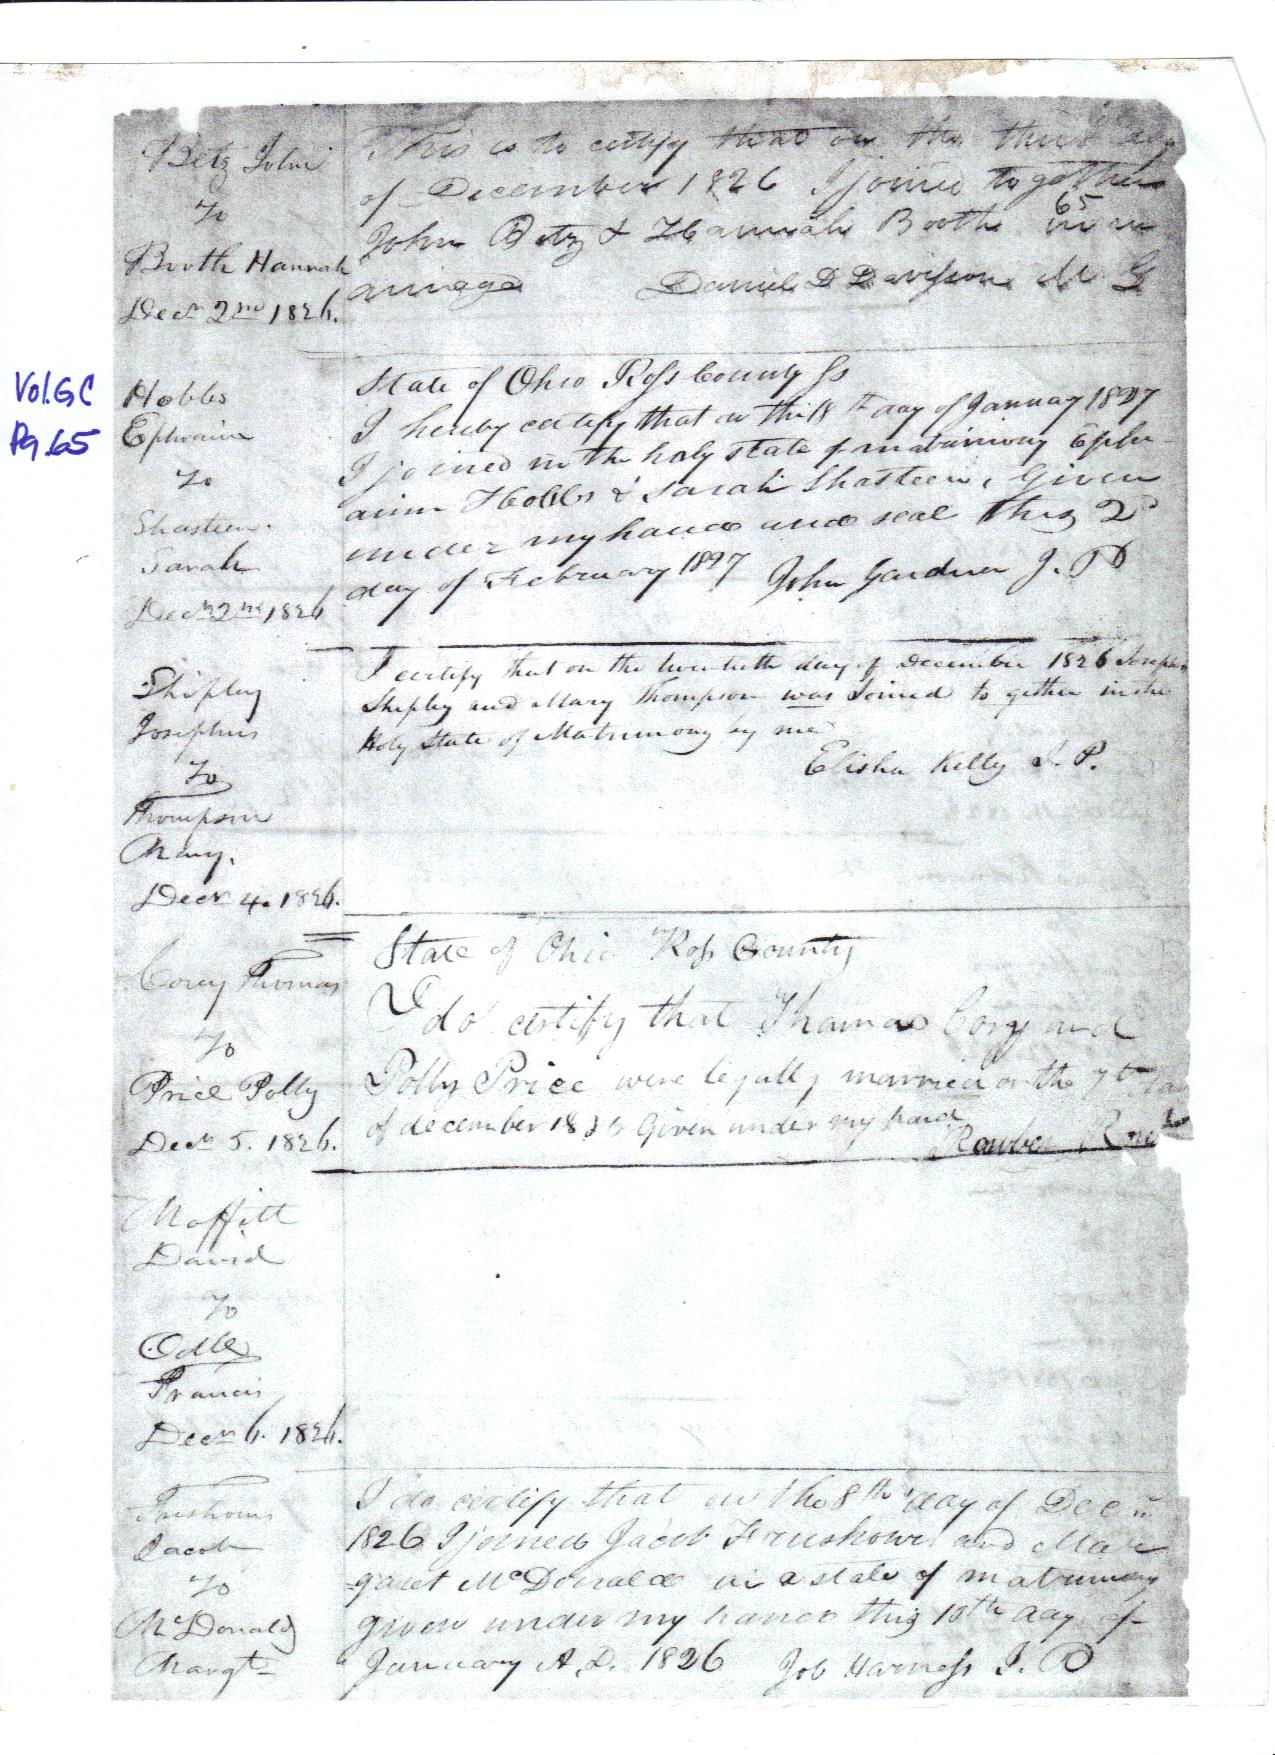 Betz John
To
Booth Hannah
Decr 2nd 1826.
This is to certify that on the third day
of December 1826 I joined together
65
John Betz & Hannah Booth in m
arriage Daniel D Davisson M G
Vol. G C
Pg. 65
Hobbs
Ephraim
To
Shasteen.
Sarah
Decr 2nd 1826
State of Ohio Ross County Ss
I hereby certify that on the 18th day of January 1827
I joined in the holy state of matrimony Ephr
aim Hobbs & Sarah Shasteen, Given
under my hand and seal this 2d
day of February 1827 John Gardner J. P
Shipley
Josephus
To
Thompson
Mary.
Decr 4. 1826.
I certify that on the twentieth day of December 1826 Josephus
Shipley and Mary Thompson was Joined to gether in the
Holy State of Matrimony by me
Elisha Kelly J. P.
Corey Thomas
To
Price Polly
Decr 5. 1826.
State of Ohio Ross County
I do certify that Thomas Cory and
Polly Price were legally married on the 7th day
of december 1826 Given under my hand
Moffitt
David
To
Odle
Francis
Decr 6. 1826.
Jacob
To
McDonald
Margt
I do certify that on the 8th day of Decm
1826 I joined Jacob Frushour and Mar
garet McDonald in a state of matrimony
given under my hand this 10th day of
January A.D. 1826 Job Harness J. P